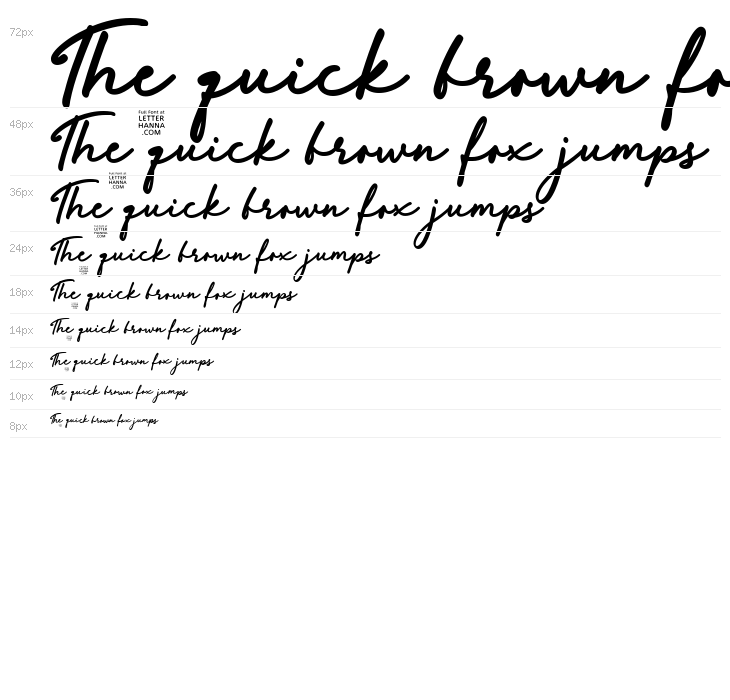 72px The quick brown fo
48px The quick brown fox jumps
Full Font at
LETTER
HANNA
.COM
36px The quick brown fox jumps
Full Font at
LETTER
HANNA
.COM
24px The quick brown fox jumps
Full Font at
LETTER
HANNA
.COM
18px The quick brown fox jumps
14px The quick brown fox jumps
12px The quick brown fox jumps
10px The quick brown fox jumps
8px The quick brown fox jumps